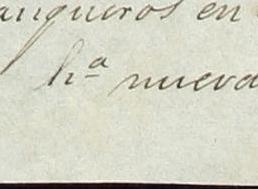 anqueros en
hª nueva